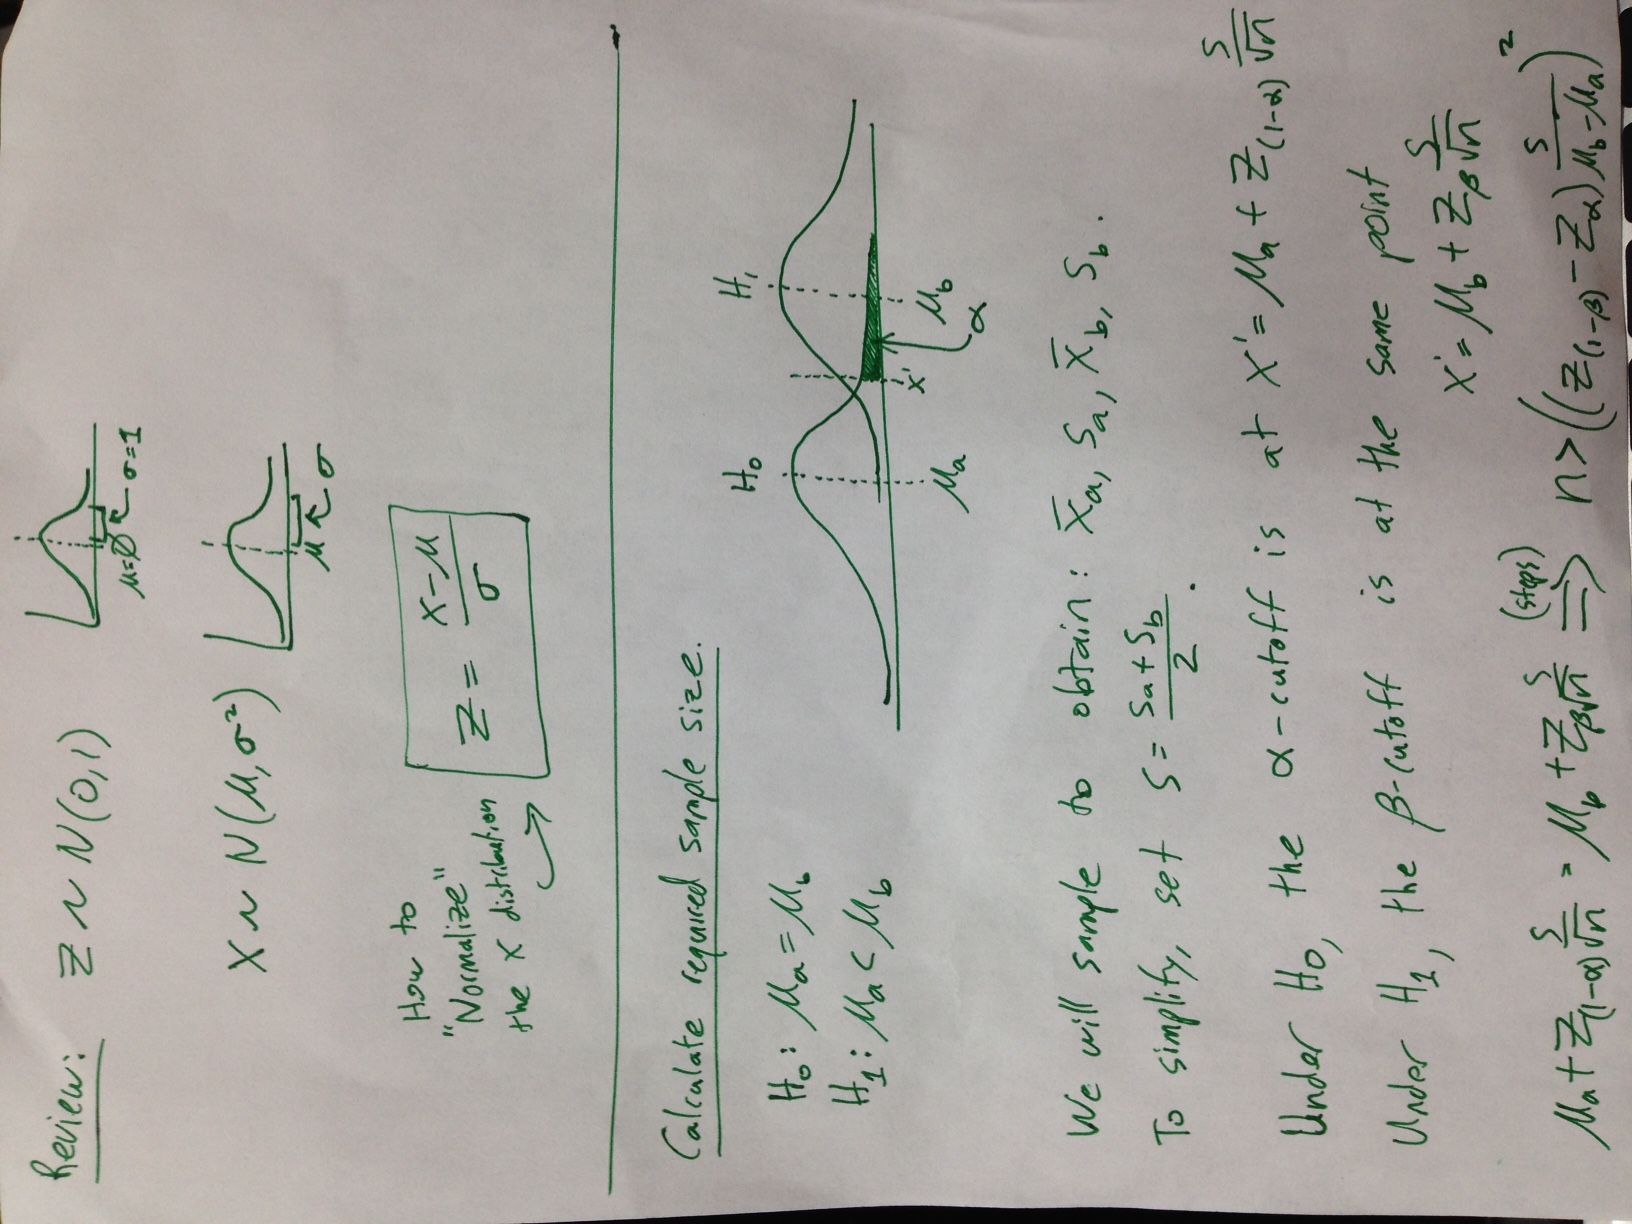 Review: Z ~ N(0,1)
μ=Ø σ=1
X ~ N(μ,σ²)
μ σ
How to
"Normalize"
the X distribution
Z = (x-μ)/σ
Calculate required sample size.
H₀ H₁
H₀: μₐ = μ_b
H₁: μₐ < μ_b
x'
μₐ μ_b
α
We will sample to obtain: x̄ₐ, Sₐ, x̄_b, S_b.
To simplify, set S = (Sₐ + S_b)/2.
Under H₀, the α-cutoff is at X' = μₐ + Z_(1-α) S/√n
Under H₁, the β-cutoff is at the same point
X' = μ_b + Z_β S/√n
μₐ + Z_(1-α) S/√n = μ_b + Z_β S/√n (steps) ⟹ n > ((Z_(1-β) - Z_α) S/(μ_b - μₐ))²